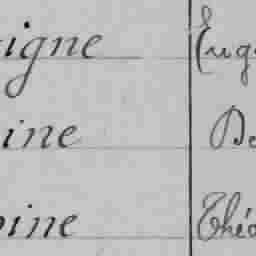 igne Eug
ine De
ine Théo